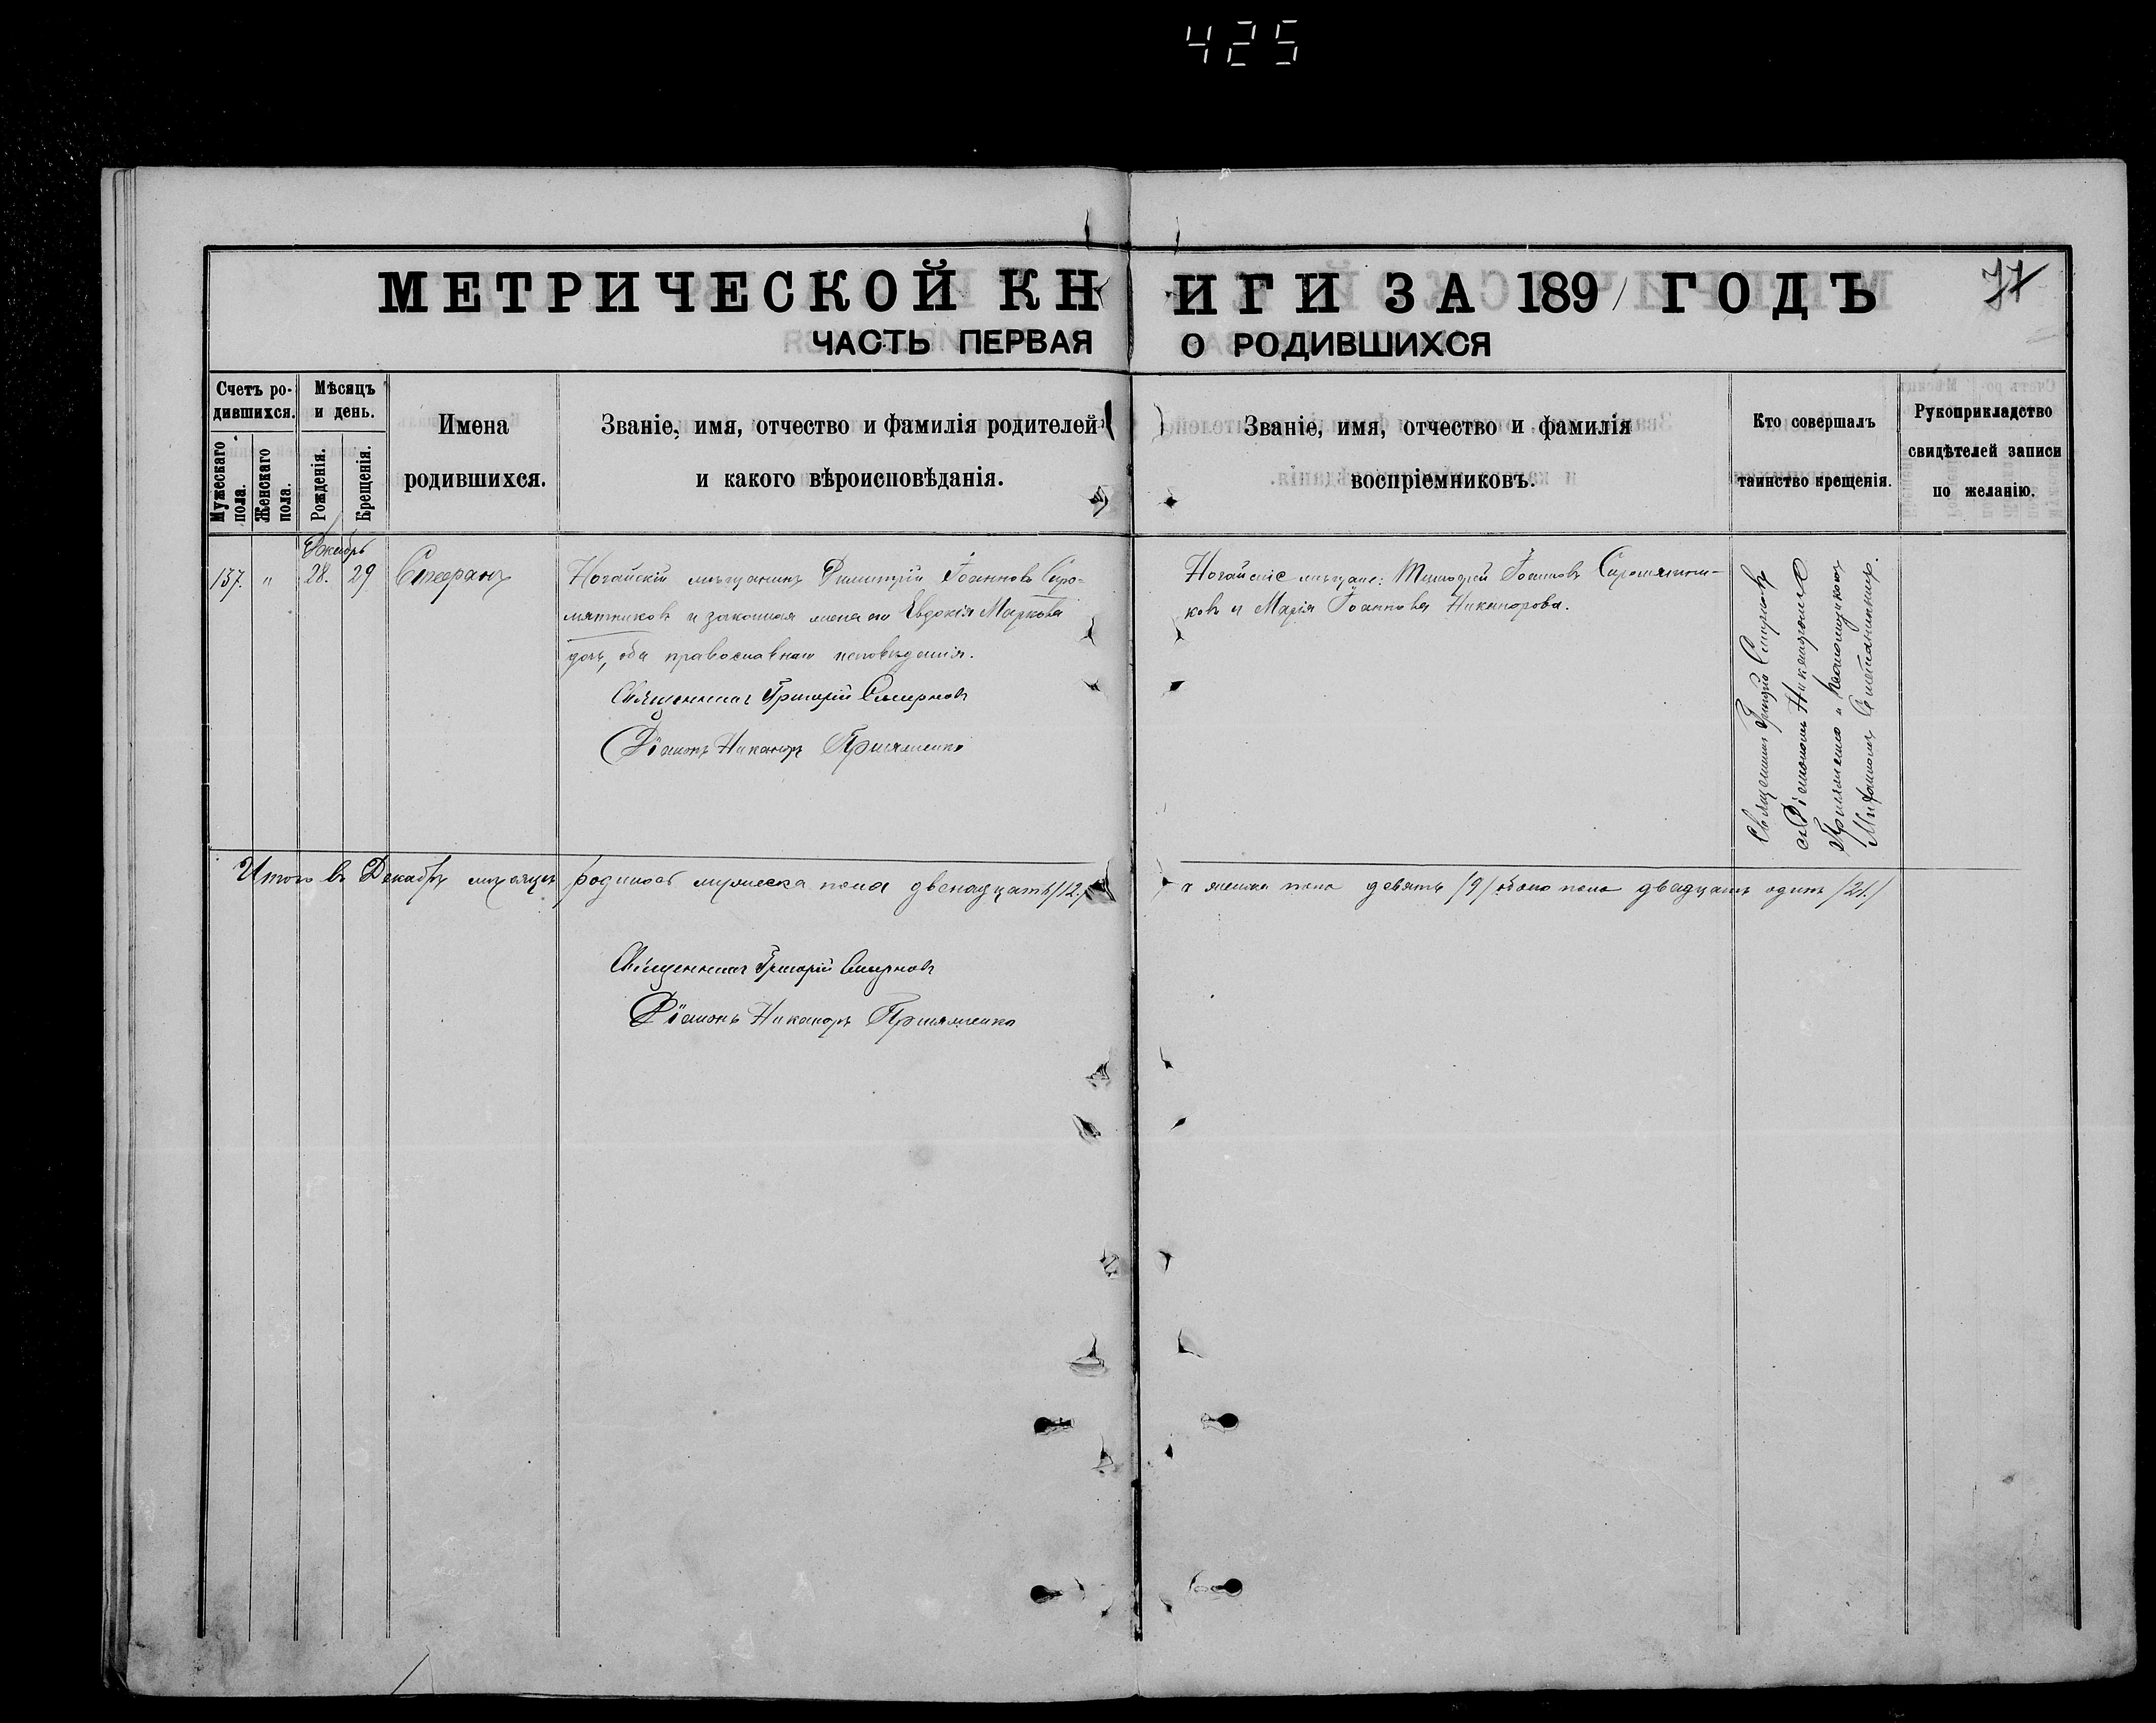 425
МЕТРИЧЕСКОЙ КНИГИ ЗА 1891 ГОДЪ
77
ЧАСТЬ ПЕРВАЯ О РОДИВШИХСЯ
Счетъ родившихся.
Мужескаго пола.
Женскаго пола.
Мѣсяцъ и день.
Рожденія.
Крещенія.
Имена
родившихся.
Званіе, имя, отчество и фамилія родителей
и какого вѣроисповѣданія.
Званіе, имя, отчество и фамилія
воспріемниковъ.
Кто совершалъ
таинство крещенія.
Рукоприкладство
свидѣтелей записи
по желанію.
Декабрь
137. " 28. 29 Стефанъ
Ногайскій мѣщанинъ Димитрій Іоанновъ Сыро-
мятниковъ и законная жена его Евдокія Маркова
дочь, оба православнаго исповѣданія.
Священникъ Григорій Смирновъ
Діаконъ Никаноръ
Ногайскіе мѣщане: Тимофей Іоанновъ Сыромятни-
ковъ и Марія Іоаннова Никанорова.
Священникъ Григорій Смирновъ
съ Діакономъ Никаноромъ
и псаломщикомъ
Митрофаномъ
Итого въ Декабрѣ мѣсяцѣ родилось мужеска пола двенадцать /12/
а женска пола девять /9/ обоего пола двадцать одинъ /21./
Священникъ Григорій Смирновъ
Діаконъ Никаноръ